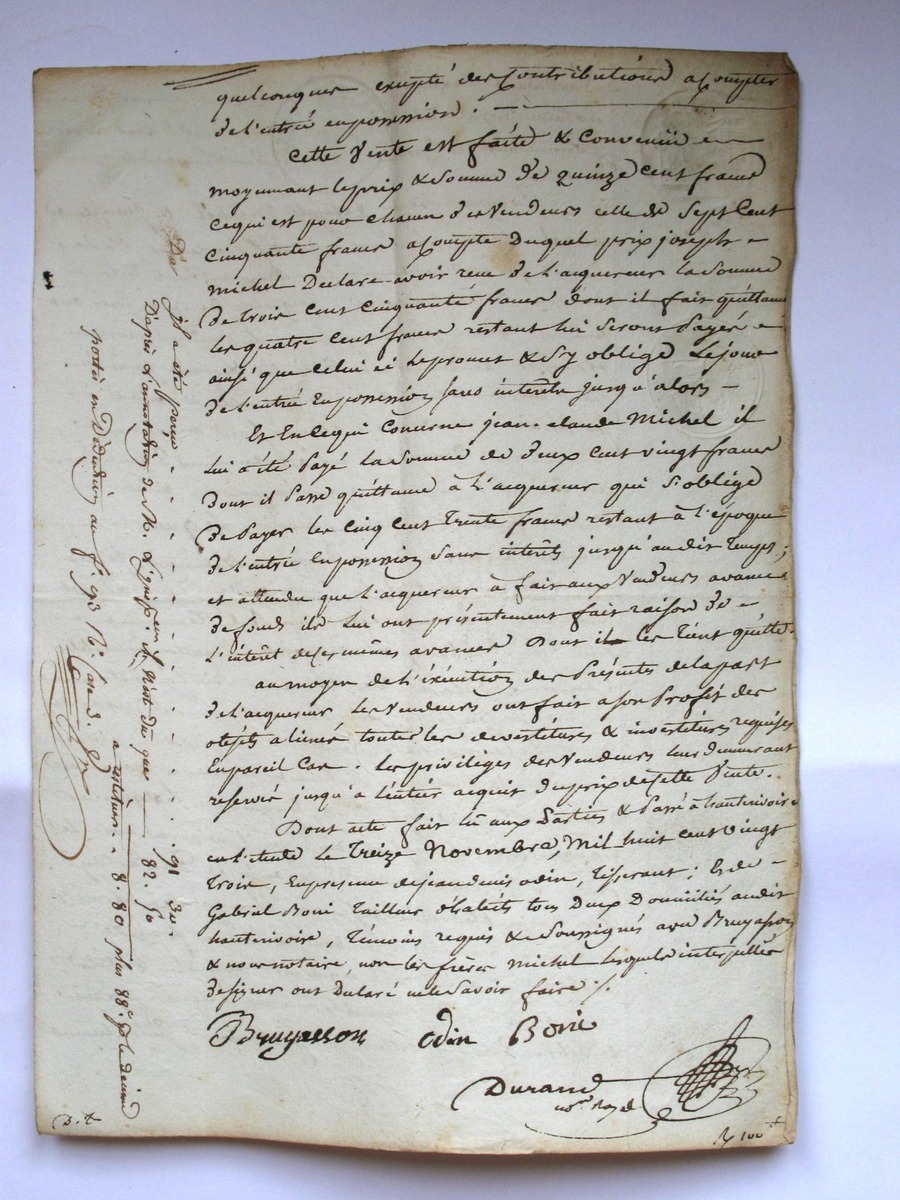 quelconques excepté des Contributions a Compter
de l'entrée en possession.
Cette Vente est faite & Convenüe
moyennant le prix & Somme de quinze cent francs
ce qui est pour chacun des Vendeurs celle de Sept Cent
Cinquante francs a Compte duquel prix joseph
michel Declare avoir recu de l'acquereur la Somme
De trois cent cinquante francs dont il fait quittance
les quatre cent francs restant lui Seront Payés
ainsi que Celui ci le promet & S'y oblige le jour
de l'entrée En possession Sans interets jusqu'alors
Et En Ce qui Concerne jean-claude Michel il
lui a été Payé la Somme de deux cent vingt francs
Dont il Passe quittance à l'acquereur qui S'oblige
De Payer les Cinq Cent Trente francs restant à l'epoque
de l'entrée En possession Sans interêts jusqu'au dit Temps;
et attendu que l'acquereur à fait aux Vendeurs avance
de fonds ils lui ont présentement fait raison de
l'interêt de ces mêmes avances Dont il les Tient quitte.
au moyen de l'exécution des Présentes de la part
de l'acquereur les Vendeurs ont fait a son Profit des
objets aliénés toutes les devestitures & investitures requises
En pareil Cas. les privilèges des Vendeurs leur demeurant
reservés jusqu'a l'entier acquit du prix de cette Vente.
Dont acte fait lû aux Parties & Passé à hauterivoire
en l'etude le Treize Novembre, Mil huit cent vingt
Trois, En presence de jean denis odin, Tisserant; & de
Gabriel Boni Tailleur d'habits tous Deux Domiciliés audit
hauterivoire, Témoins requis & Soussignés avec Bruyasson
& nous notaire, non les frères michel lesquels interpellés
de signer ont Declaré ne le Savoir faire ./.
Bruyasson odin Boni
Durand
not.re Royal
Il a été perçu . . . 91 30.
D'après l'annotation de M. il n'est du que 82. 50
a restituer . . 8. 80 plus 88.c p.r le decime
portés en Déduction au f.o 93